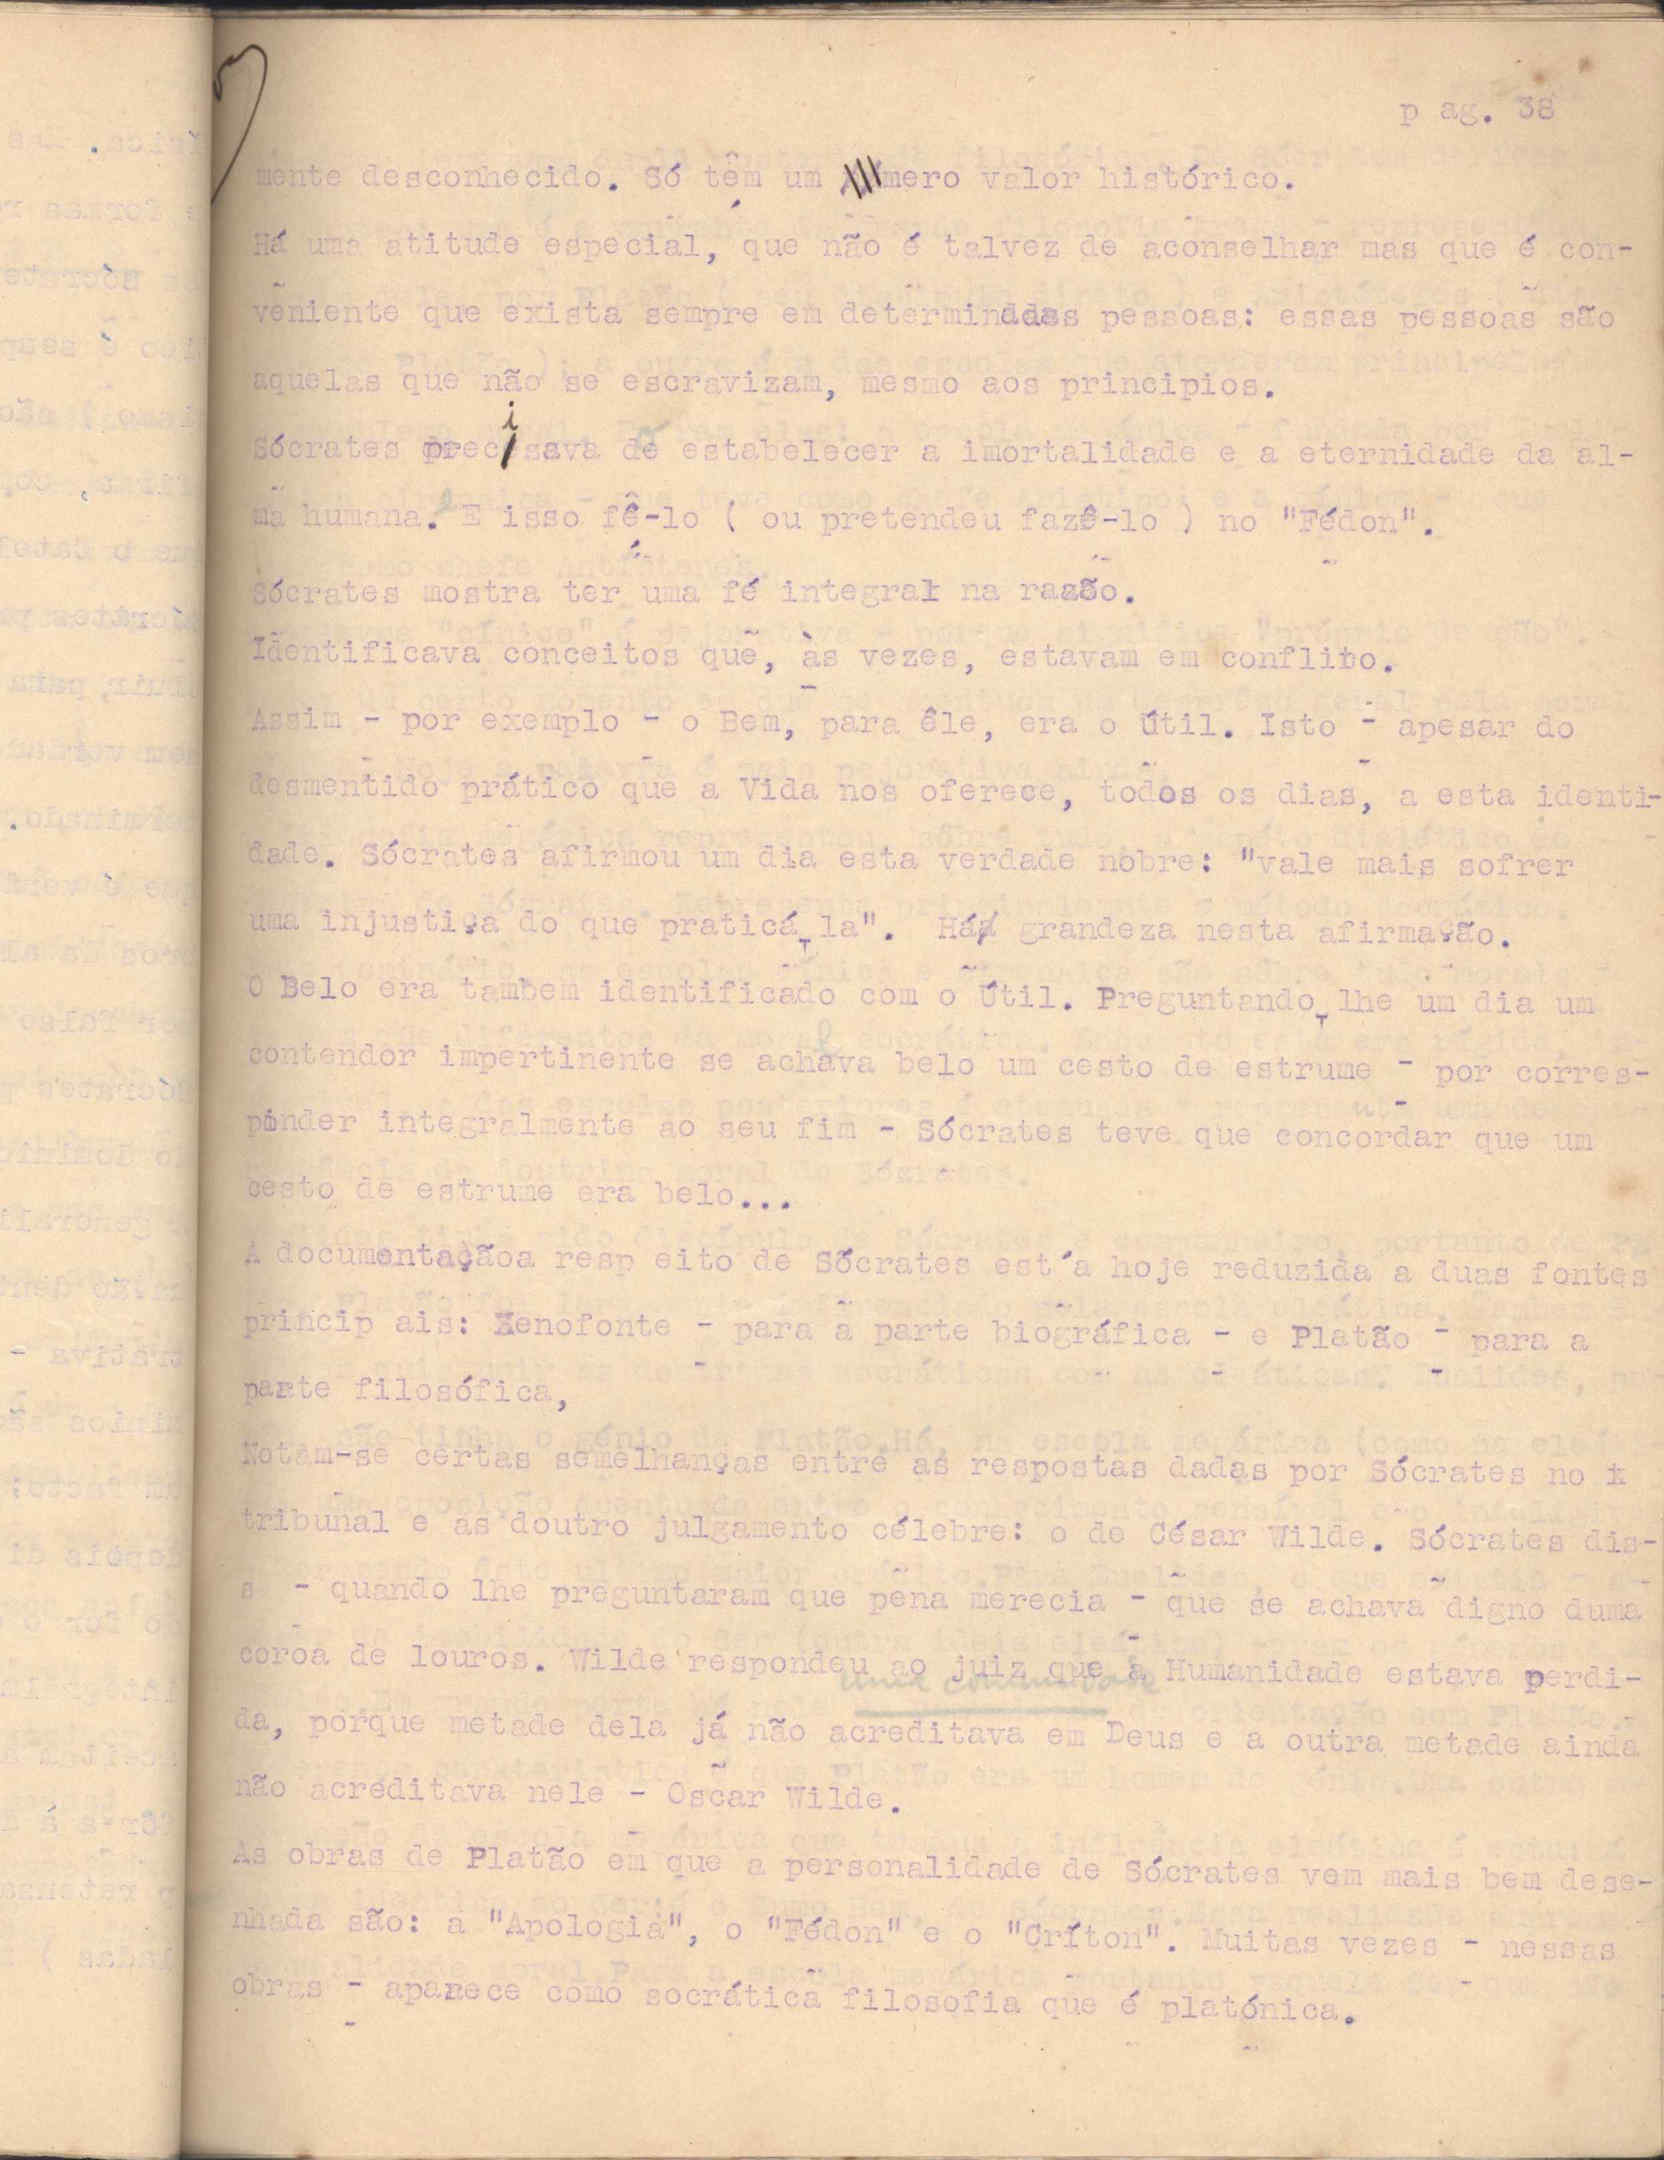 p ag. 38
mente desconhecido. Só têm um mero valor histórico.
Há uma atitude especial, que não é talvez de aconselhar mas que é con-
veniente que exista sempre em determinadas pessoas: essas pessoas são
aquelas que não se escravizam, mesmo aos principios.
Sócrates precisava de estabelecer a imortalidade e a eternidade da al-
ma humana. E isso fê-lo ( ou pretendeu fazê-lo ) no "Fédon".
Sócrates mostra ter uma fé integral na razão.
Identificava conceitos que, às vezes, estavam em conflito.
Assim - por exemplo - o Bem, para êle, era o Útil. Isto - apesar do
desmentido prático que a Vida nos oferece, todos os dias, a esta identi-
dade. Sócrates afirmou um dia esta verdade nobre: "vale mais sofrer
uma injustiça do que praticá-la". Há grandeza nesta afirmação.
O Belo era tambem identificado com o Útil. Preguntando-lhe um dia um
contendor impertinente se achava belo um cesto de estrume - por corres-
ponder integralmente ao seu fim - Sócrates teve que concordar que um
cesto de estrume era belo...
A documentaçãoa resp eito de Sócrates est´a hoje reduzida a duas fontes
princip ais: Xenofonte - para a parte biográfica - e Platão - para a
parte filosófica,
Notam-se certas semelhanças entre as respostas dadas por Sócrates no
tribunal e as doutro julgamento célebre: o de César Wilde. Sócrates dis-
s - quando lhe preguntaram que pena merecia - que se achava digno duma
coroa de louros. Wilde respondeu ao juiz que a Humanidade estava perdi-
da, porque metade dela já não acreditava em Deus e a outra metade ainda
não acreditava nele - Oscar Wilde.
As obras de Platão em que a personalidade de Sócrates vem mais bem dese-
nhada são: a "Apologia", o "Fédon" e o "Críton". Muitas vezes - nessas
obras - aparece como socrática filosofia que é platónica.